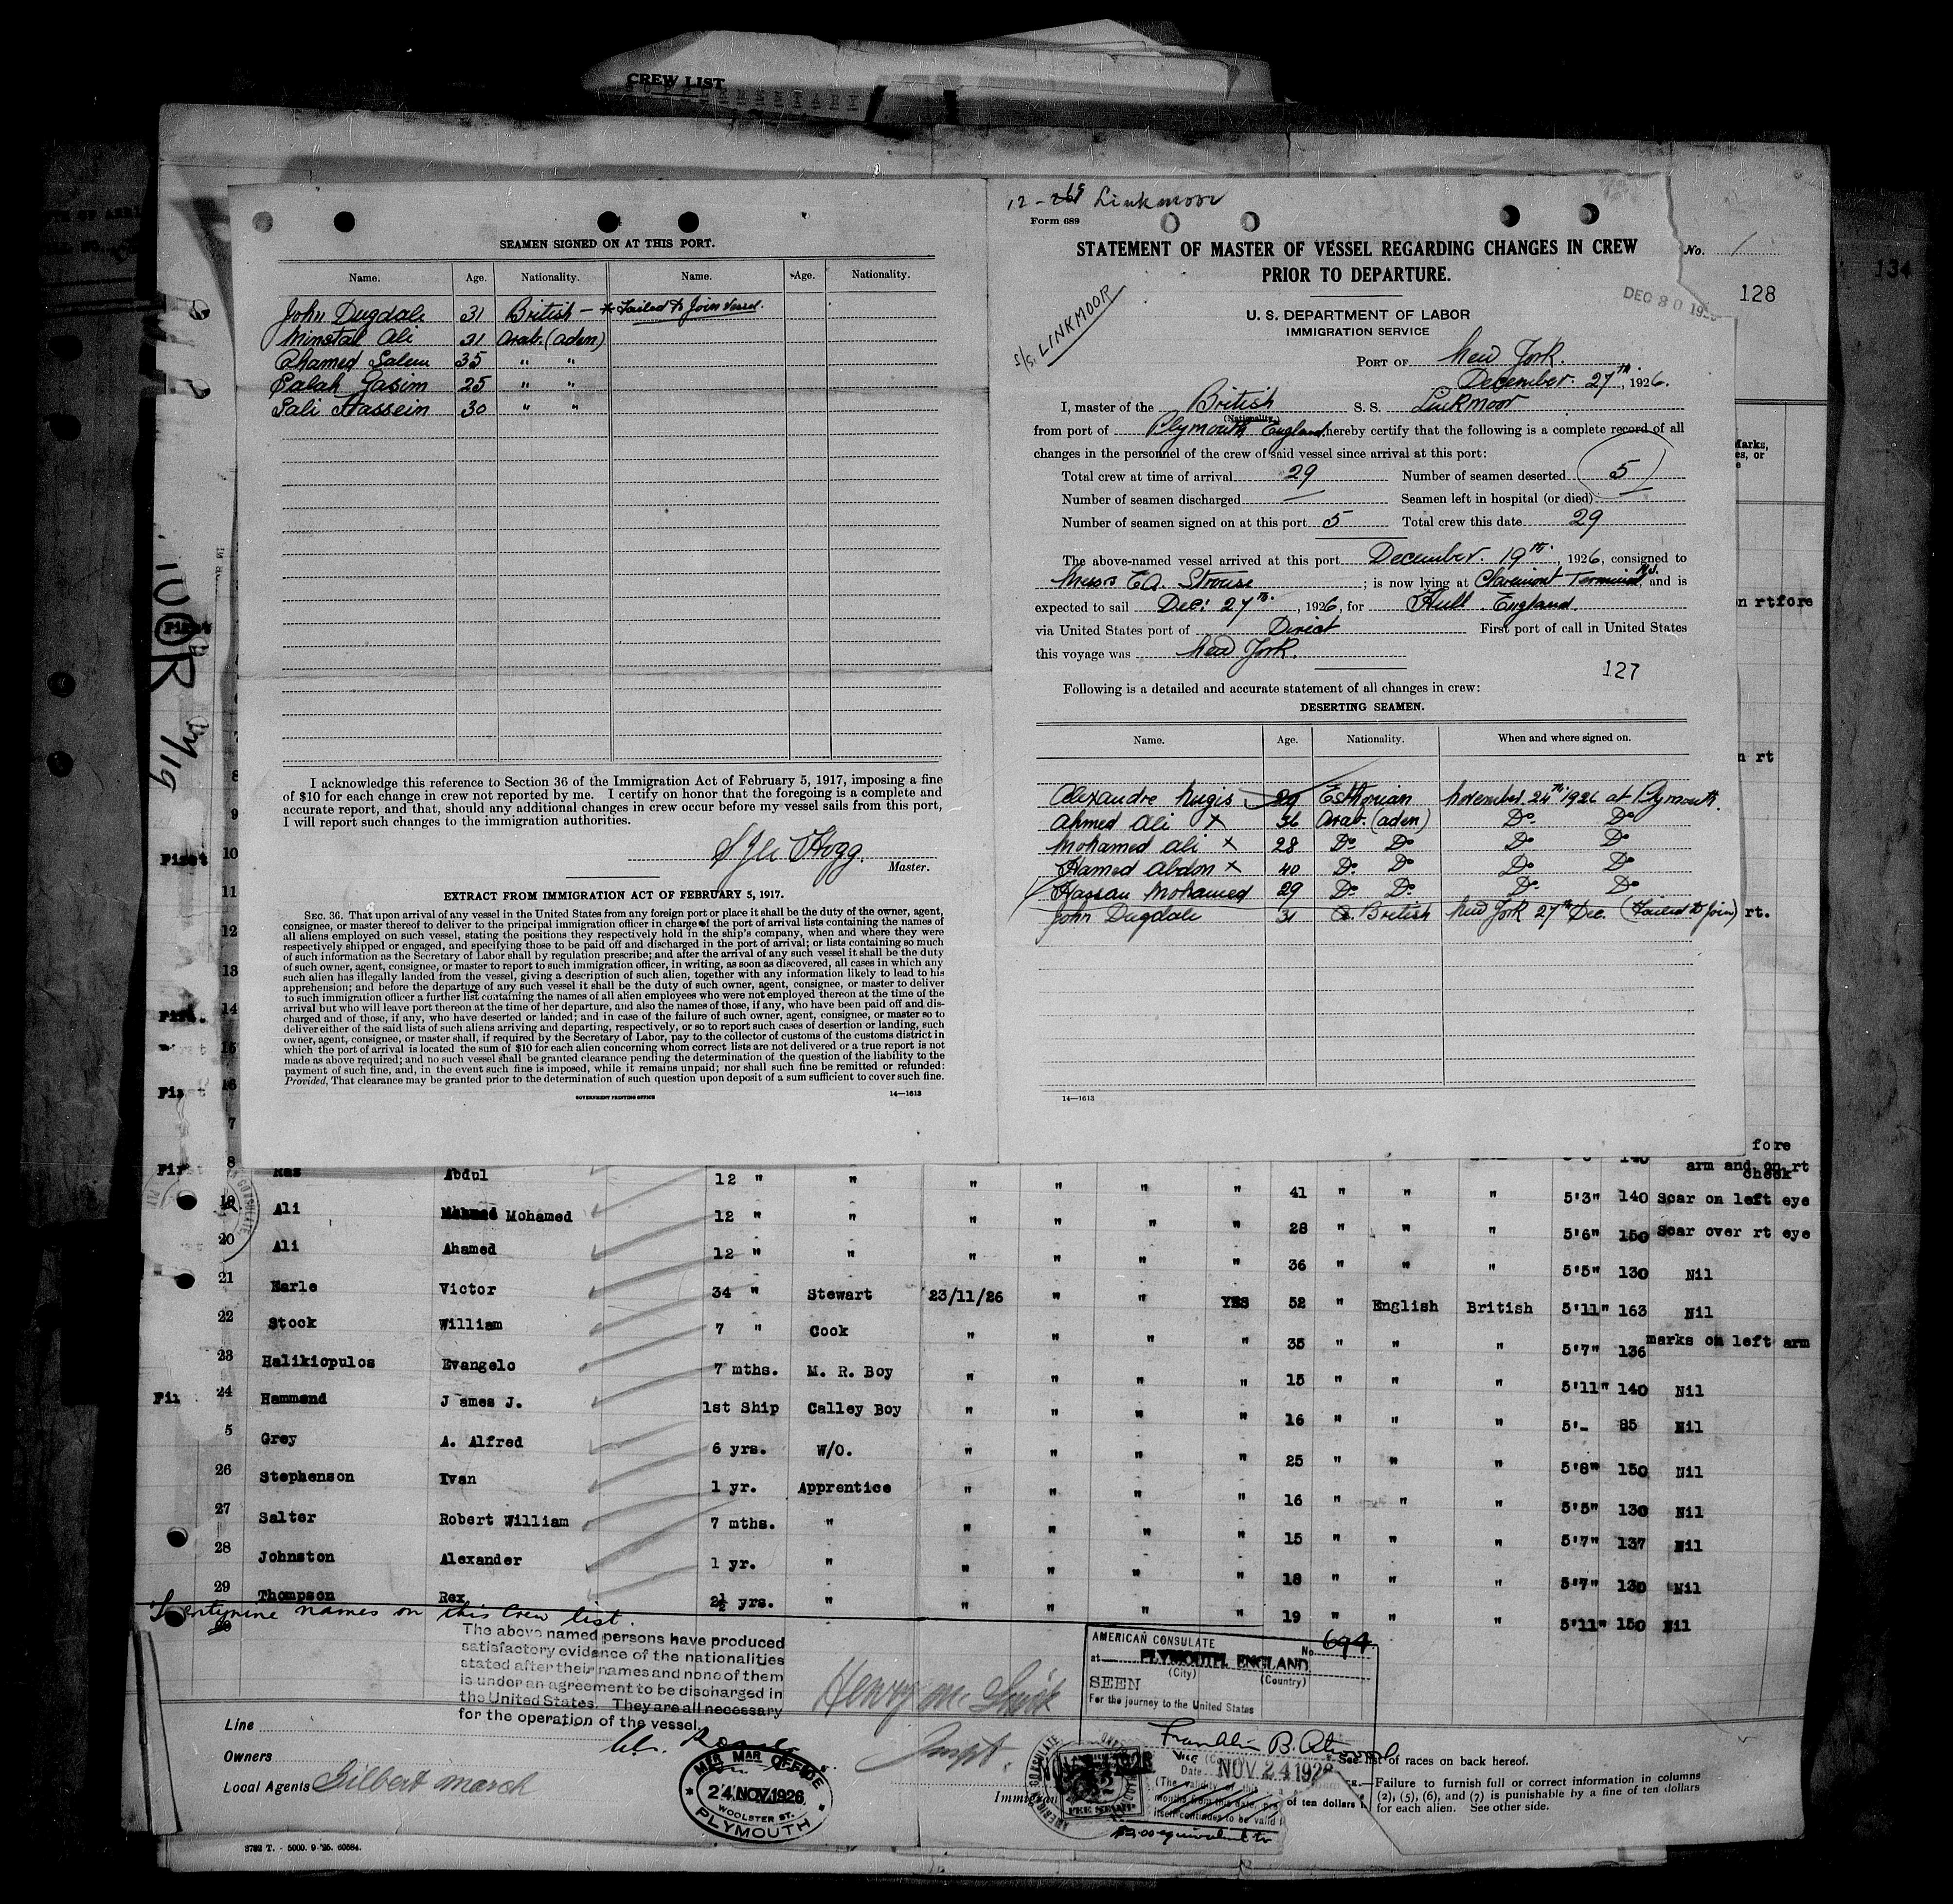 CREW LIST
SEAMEN SIGNED ON AT THIS PORT.
Name. Age. Nationality. Name. Age. Nationality.
John Dugdale 31 British - * Failed to Join Vessel.
Minstal Ali 31 Arab. (Aden)
Ahamed Salem 35 " "
Salah Gasim 25 " "
Sali Hassein 30 " "
I acknowledge this reference to Section 36 of the Immigration Act of February 5, 1917, imposing a fine
of $10 for each change in crew not reported by me. I certify on honor that the foregoing is a complete and
accurate report, and that, should any additional changes in crew occur before my vessel sails from this port,
I will report such changes to the immigration authorities.
Hogg.
Master.
EXTRACT FROM IMMIGRATION ACT OF FEBRUARY 5, 1917.
SEC. 36. That upon arrival of any vessel in the United States from any foreign port or place it shall be the duty of the owner, agent,
consignee, or master thereof to deliver to the principal immigration officer in charge of the port of arrival lists containing the names of
all aliens employed on such vessel, stating the positions they respectively hold in the ship's company, when and where they were
respectively shipped or engaged, and specifying those to be paid off and discharged in the port of arrival; or lists containing so much
of such information as the Secretary of Labor shall by regulation prescribe; and after the arrival of any such vessel it shall be the duty
of such owner, agent, consignee, or master to report to such immigration officer, in writing, as soon as discovered, all cases in which any
such alien has illegally landed from the vessel, giving a description of such alien, together with any information likely to lead to his
apprehension; and before the departure of any such vessel it shall be the duty of such owner, agent, consignee, or master to deliver
to such immigration officer a further list containing the names of all alien employees who were not employed thereon at the time of the
arrival but who will leave port thereon at the time of her departure, and also the names of those, if any, who have been paid off and dis-
charged and of those, if any, who have deserted or landed; and in case of the failure of such owner, agent, consignee, or master so to
deliver either of the said lists of such aliens arriving and departing, respectively, or so to report such cases of desertion or landing, such
owner, agent, consignee, or master shall, if required by the Secretary of Labor, pay to the collector of customs of the customs district in
which the port of arrival is located the sum of $10 for each alien concerning whom correct lists are not delivered or a true report is not
made as above required; and no such vessel shall be granted clearance pending the determination of the question of the liability to the
payment of such fine, and, in the event such fine is imposed, while it remains unpaid; nor shall such fine be remitted or refunded:
Provided, That clearance may be granted prior to the determination of such question upon deposit of a sum sufficient to cover such fine.
GOVERNMENT PRINTING OFFICE 14—1613
Linkmoor
Form 689
STATEMENT OF MASTER OF VESSEL REGARDING CHANGES IN CREW
PRIOR TO DEPARTURE.
No. 1
134
128
DEC 30
S/S. LINKMOOR
U. S. DEPARTMENT OF LABOR
IMMIGRATION SERVICE
PORT OF New York.
December. 27th, 1926.
I, master of the British S. S. Linkmoor
(Nationality.)
from port of Plymouth England hereby certify that the following is a complete record of all
changes in the personnel of the crew of said vessel since arrival at this port:
Total crew at time of arrival 29 Number of seamen deserted 5
Number of seamen discharged — Seamen left in hospital (or died) —
Number of seamen signed on at this port 5 Total crew this date 29
The above-named vessel arrived at this port December. 19th, 1926, consigned to
Messrs E.A. Strouse ; is now lying at Claremont Terminal N.J. and is
expected to sail Dec: 27th, 1926, for Hull. England.
via United States port of Direct First port of call in United States
this voyage was New York.
127
Following is a detailed and accurate statement of all changes in crew:
DESERTING SEAMEN.
Name. Age. Nationality. When and where signed on.
Alexandre Nugis 29 Esthonian November 24th 1926 at Plymouth.
Ahmed Ali x 36 Arab. (Aden) Do Do
Mohamed Ali x 28 Do Do Do Do
Hamed Abdon x 40 Do Do Do Do
Hassan Mohamed 29 Do Do Do Do
John Dugdale 31 British New York 27th Dec. (Failed to Join) rt.
14—1613
fore
arm and on rt
check
Ras Abdul 12 " " " " " " 41 " " " 5'3" 140 Scar on left eye
19 Ali Mohamed 12 " " " " " " 28 " " " 5'6" 150 Scar over rt eye
20 Ali Ahamed 12 " " " " " " 36 " " " 5'5" 130 Nil
21 Earle Victor 34 " Stewart 23/11/26 " " YES 52 " English British 5'11" 163 Nil
22 Stock William 7 " Cook " " " " 35 " " " 5'7" 136 marks on left arm
23 Halikiopulos Evangelo 7 mths. M. R. Boy " " " " 15 " " " 5'11" 140 Nil
24 Hammond J ames J. 1st Ship Calley Boy " " " " 16 " " " 5'- 85 Nil
5 Grey A. Alfred 6 yrs. W/O. " " " " 25 " " " 5'8" 150 Nil
26 Stephenson Ivan 1 yr. Apprentice " " " " 16 " " " 5'5" 130 Nil
27 Salter Robert William 7 mths. " " " " " 15 " " " 5'7" 137 Nil
28 Johnston Alexander 1 yr. " " " " " 18 " " " 5'7" 130 Nil
29 Thompson Rex 2½ yrs. " " " " " 19 " " " 5'11" 150 Nil
Twentynine names on this Crew list.
The above named persons have produced
satisfactory evidence of the nationalities
stated after their names and none of them
is under an agreement to be discharged in
the United States. They are all necessary
for the operation of the vessel.
AMERICAN CONSULATE No. 694
at PLYMOUTH, ENGLAND
(City) (Country)
SEEN
For the journey to the United States
Franklin B.
Date NOV 24 1926
Line
Owners
Local Agents Gilbert March
MER MAR OFFICE
24.NOV.1926
WOOLSTER ST.
PLYMOUTH
FEE STAMP
$2.00 equivalent to
of races on back hereof.
Failure to furnish full or correct information in columns
(2), (5), (6), and (7) is punishable by a fine of ten dollars
for each alien. See other side.
of ten dollars
3782 T. - 5000. 9-'25. 60584.